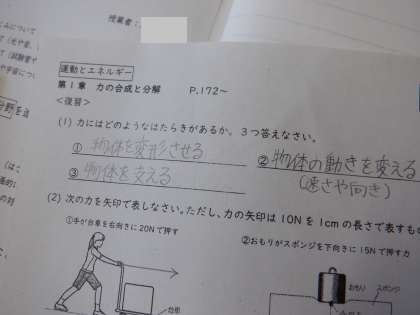 授業者:
運動とエネルギー
第1章 力の合成と分解 P.172〜
<復習>
(1) 力にはどのようなはたらきがあるか。3つ答えなさい。
① 物体を変形させる
② 物体の動きを変える
(速さや向き)
③ 物体を支える
(2) 次の力を矢印で表しなさい。ただし、力の矢印は10Nを1cmの長さで表すもの
①手が台車を右向きに20Nで押す
②おもりがスポンジを下向きに15Nで押す力
おもり
スポンジ
台車